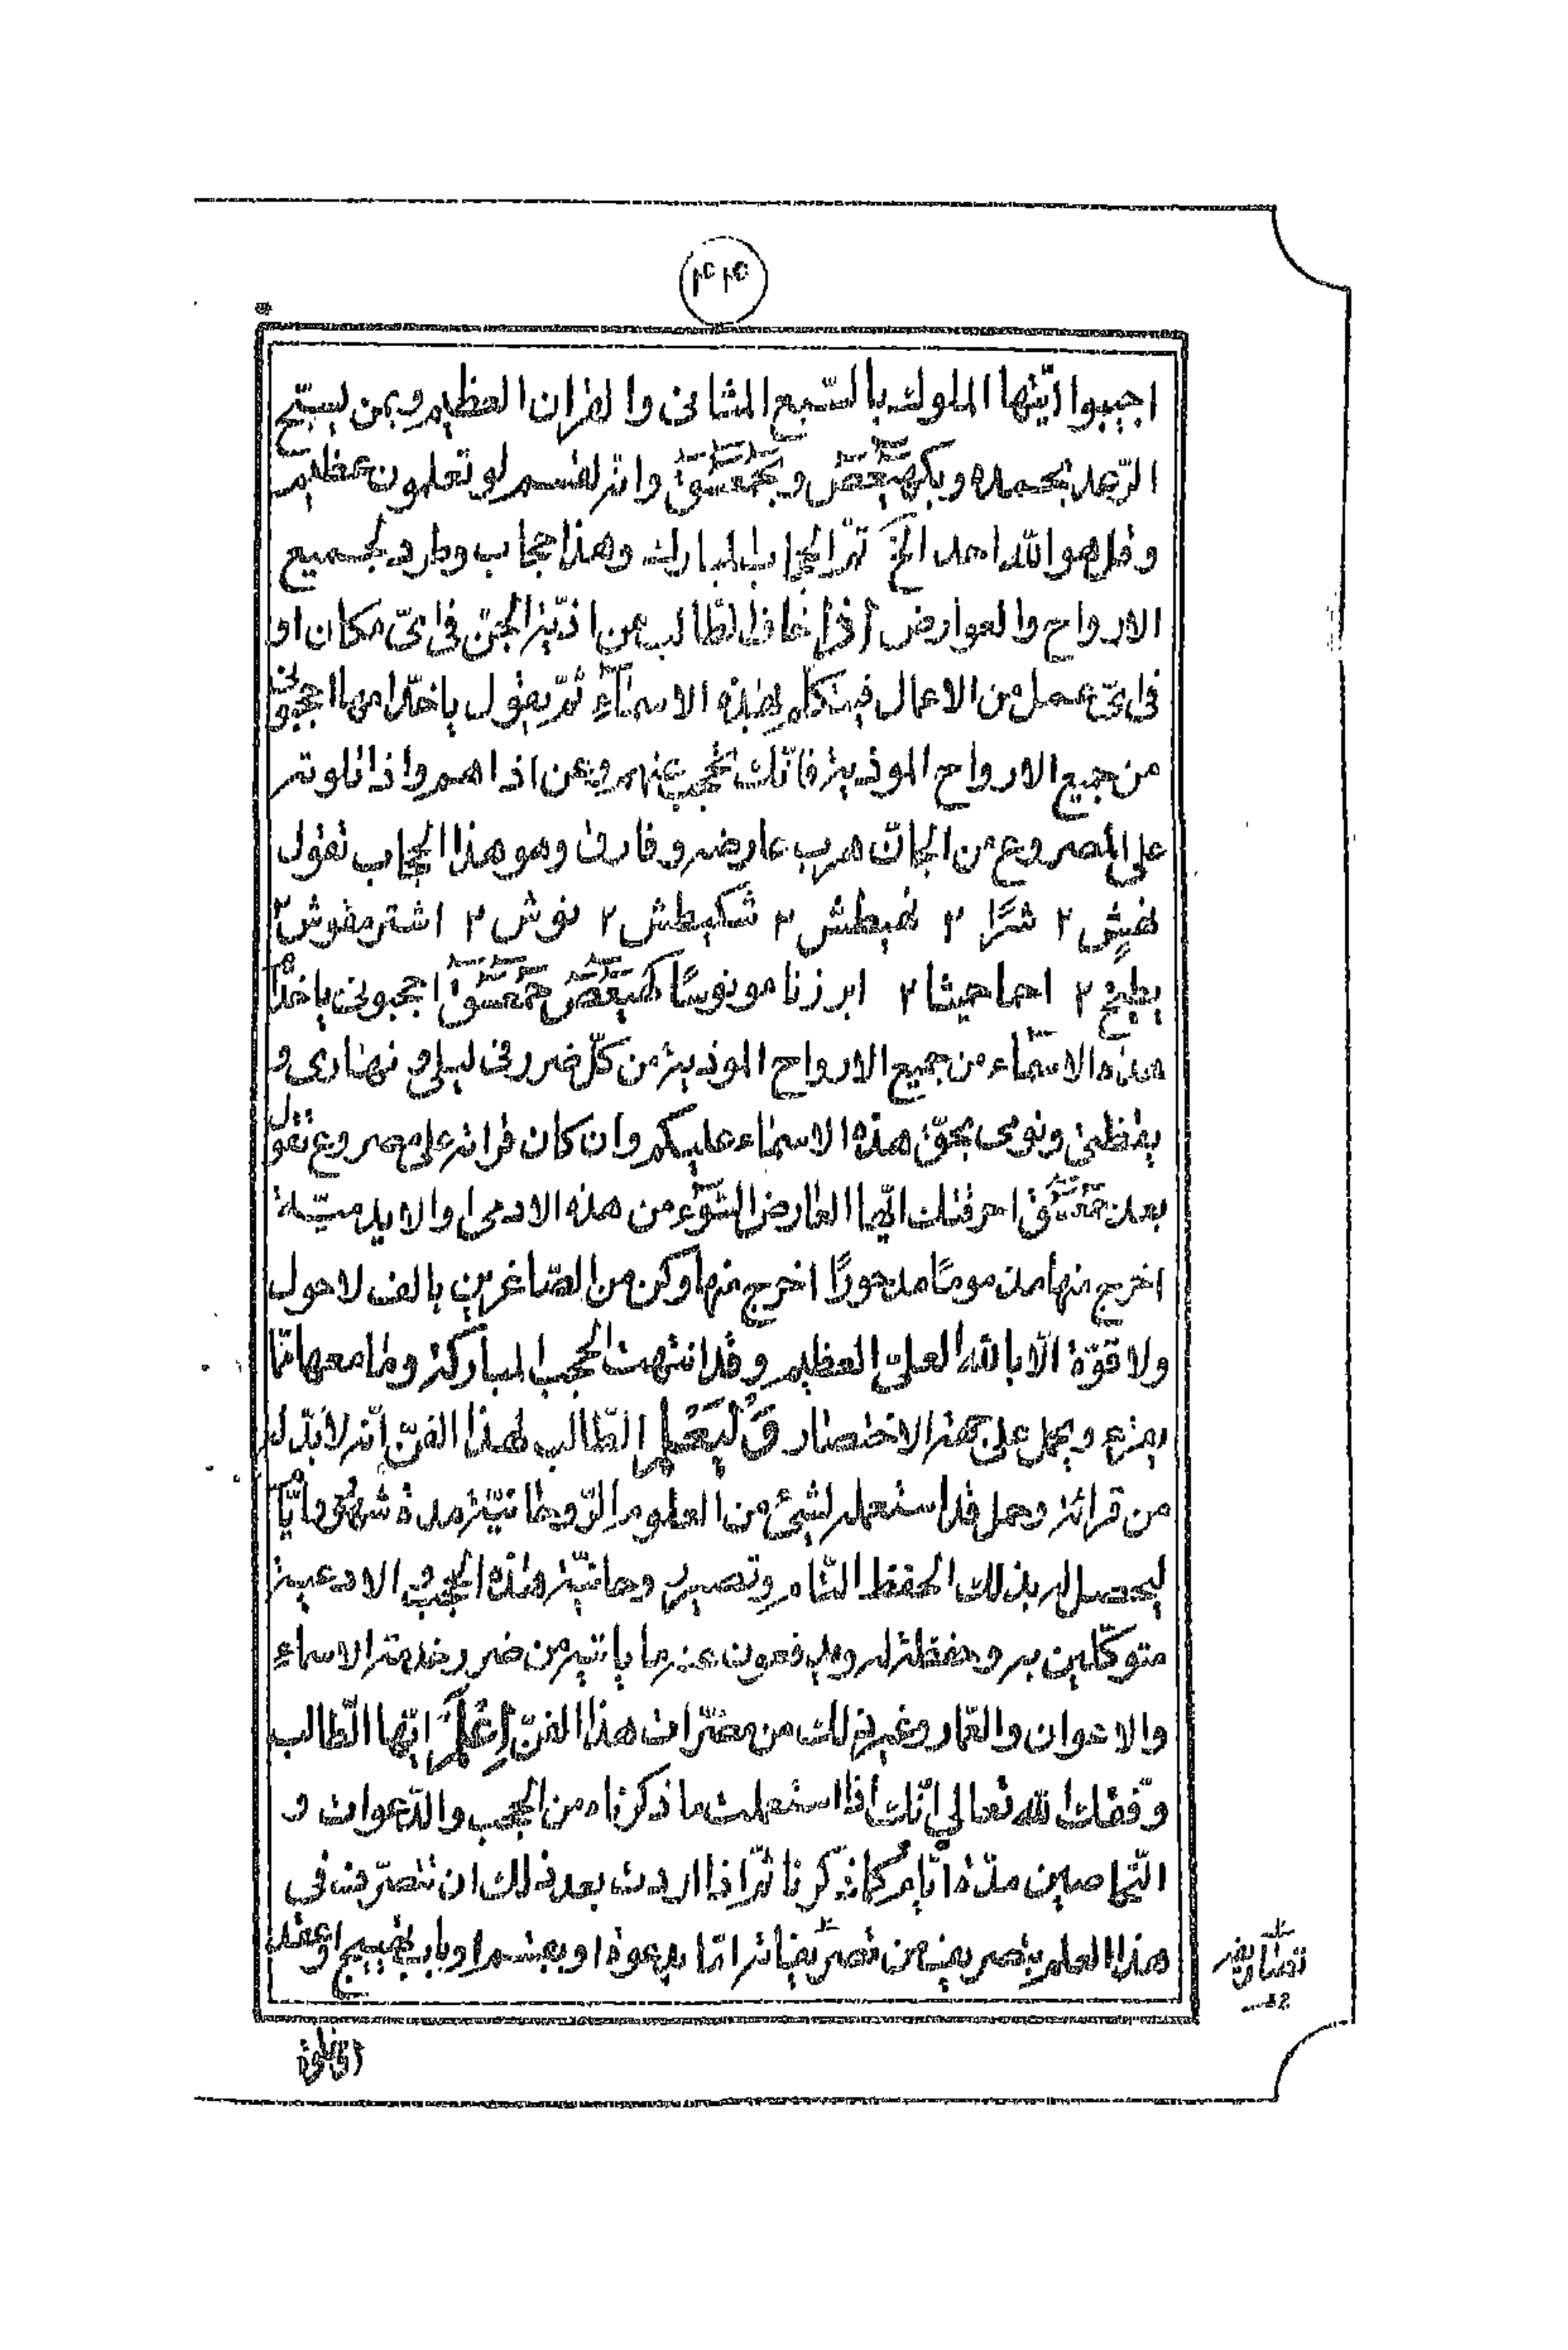 اجيبوا ايتها الملوك بالسبع المثانى والقران العظيم وبمن يسبّح
الرّعد بحمده وبكهيعص وبحمعسق وانه لقسم لو تعلمون عظيم
وقل هو الله احد الخ تمّ الحجاب المبارك وهذا حجاب وطارد لجميع
الارواح والعوارض اذا خاف الطّالب من اذيّة الجنّ فى اىّ مكان او
فى اىّ عمل من الاعمال فيتكلم بهذه الاسماء ثمّ يقول يا خدّامها احجبونى
من جميع الارواح الموذية فانّك تحجب عنهم وعن اذاهم واذا تلوته
على المصروع من الجانّ هرب عارضه وفارق وهو هذا الحجاب تقول
٢ شرًّا ٢ ٢ شكيطش ٢ نوش ٢
٢ احما حيثا ٢ ابرزنا مونوسًا كهيعص حمعسق احجبونى يا خدّام
هذه الاسماء من جميع الارواح الموذية من كلّ ضرر فى ليلى ونهارى و
يقظتى ونومى بحقّ هذه الاسماء عليكم وان كان قرائته على مصروع تقول
بعد حمعسق احرقتك ايّها العارض السّوء من هذه الادمى او الادميّة
اخرج منها مذمومًا مدحورًا اخرج منها وكن من الصّاغرين بالف لا حول
ولا قوّة الّا بالله العلىّ العظيم وقد انتهت الحجب المباركة وما معها ممّا
ويحمل على جهة الاختصار وليعلم الطّالب لهذا الفنّ انّه لا بدّ له
من قرائة وحمل قد استعمله لشىء من العلوم الرّوحانيّة مدة شهر او ايّامًا
ليحصل له بذلك الحفظ التّام وتصير روحانيّة هذه الحجب والادعية
متوكّلين به وحفظة له ويدفعون عنه ما ياتيه من ضرر خدمة الاسماء
والاعوان والعمّار وغير ذلك من مضرّات هذا الفنّ اعلم ايّها الطّالب
وفّقك الله تعالى انّك اذا استعملت ما ذكرناه من الحجب والدّعوات و
التّحاصين مدّة ايّام كما ذكرنا ثمّ اذا اردت بعد ذلك ان تتصرّف فى
هذا العلم بتصريف من تصريفاته امّا بدعوة او بقسم او باب تهييج او عقد
تصاريف